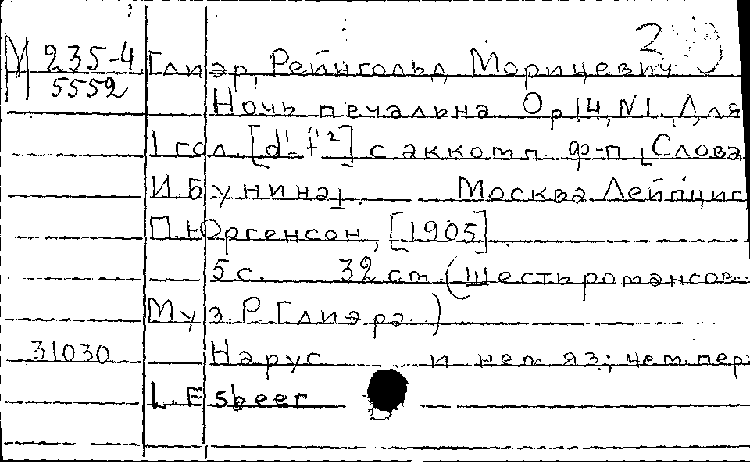 М 235-4 Глиэр, Рейнгольд Морицевич
5552 Ночь печальна Op 14, N1. Для
1 гол. [d'-f'²] с аккомп ф-п [Слова
И Бунина]. Москва Лейпциг
П. Юргенсон, [1905].
5 с. 32 cm (Шесть романсов
Муз Р Глиэра.)
31030 На рус и нем яз; нем пер
L. Esbeer